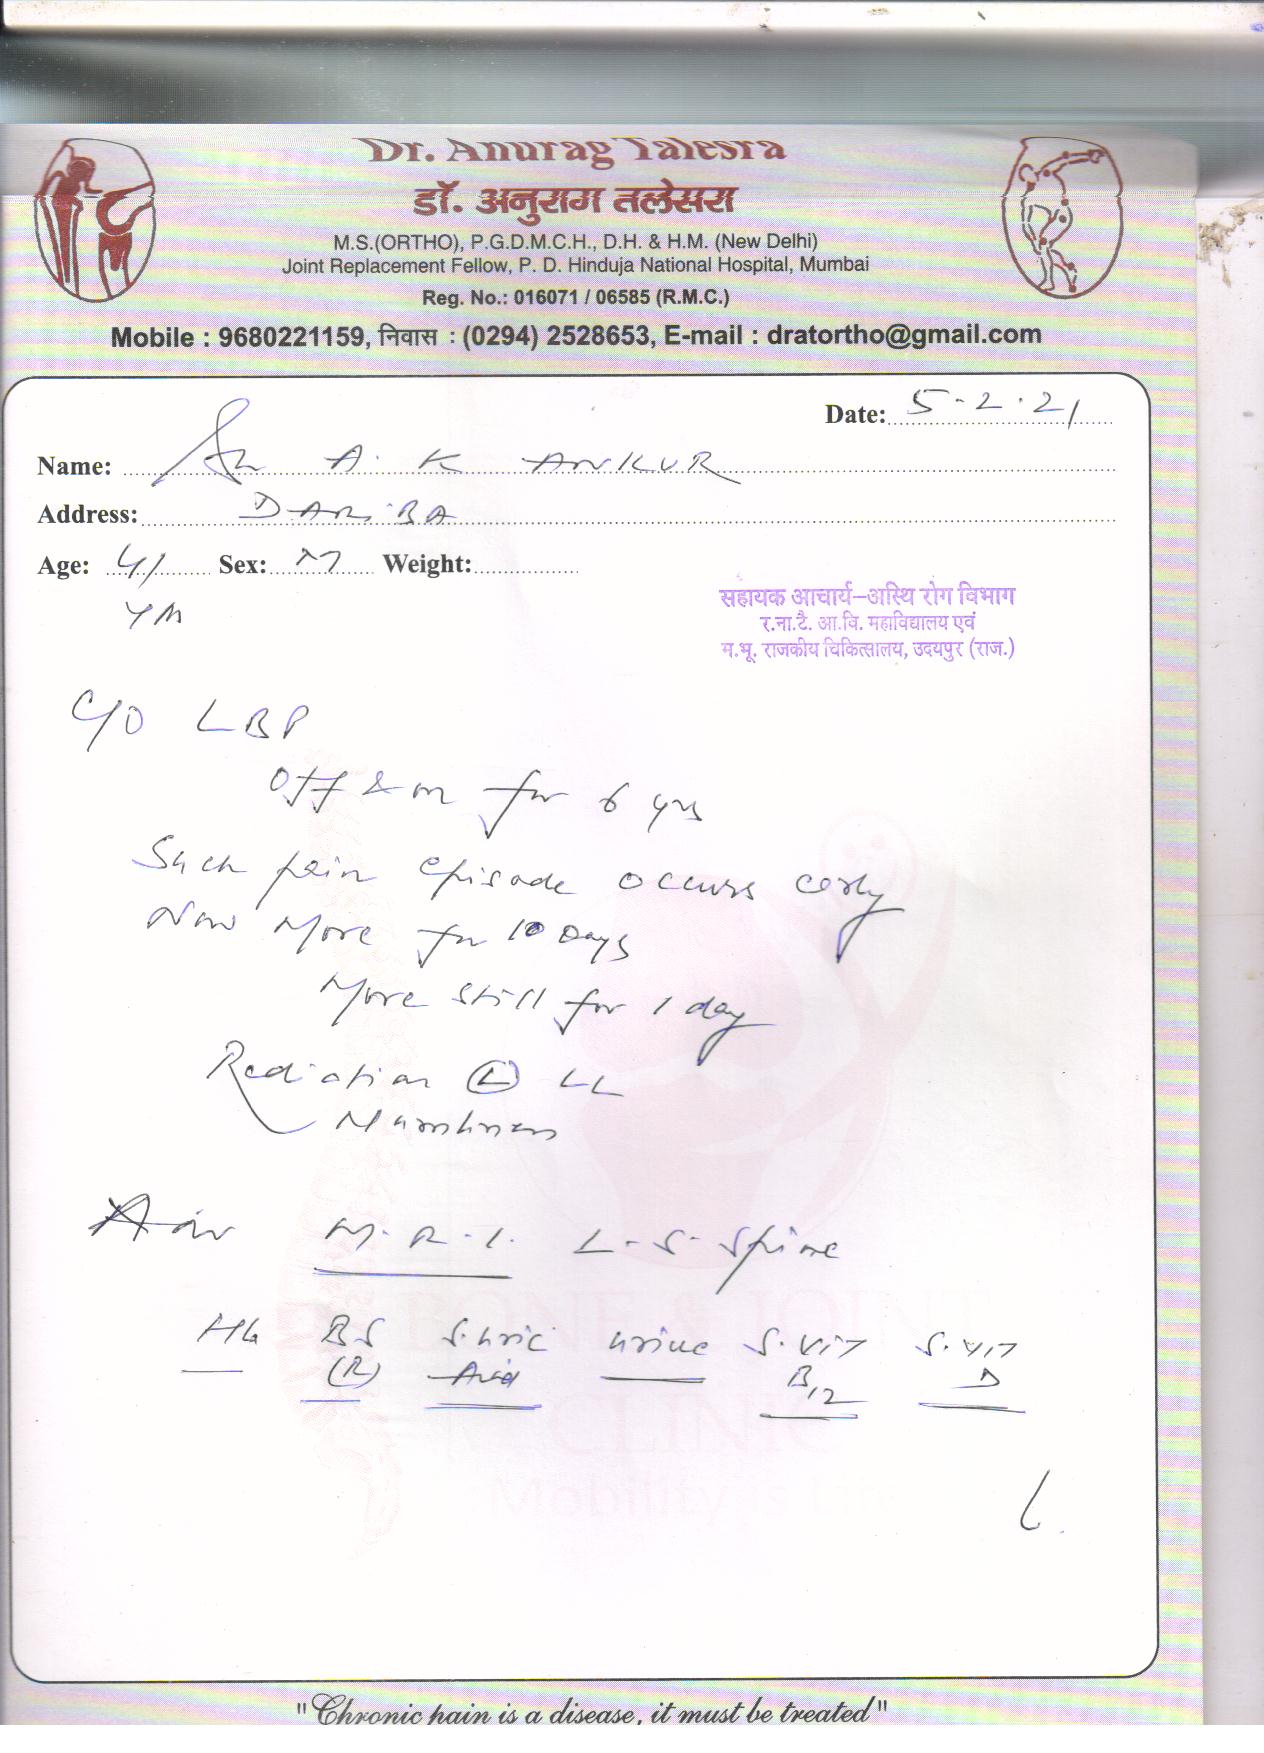 Dr. Anurag Talesra
डॉ. अनुराग तलेसरा
M.S.(ORTHO), P.G.D.M.C.H., D.H. & H.M. (New Delhi)
Joint Replacement Fellow, P. D. Hinduja National Hospital, Mumbai
Reg. No.: 016071 / 06585 (R.M.C.)
Mobile : 9680221159, निवास : (0294) 2528653, E-mail : dratortho@gmail.com
Date: 5-2-21
Name: Sh A. K ANKUR
Address: DARIBA
Age: 41 Sex: M Weight:
सहायक आचार्य–अस्थि रोग विभाग
YM
र.ना.टै. आ.वि. महाविद्यालय एवं
म.भू. राजकीय चिकित्सालय, उदयपुर (राज.)
C/O LBP
Off & on for 6 yrs
Such pain episode occurs
Now More for 10 Days
More still for 1 day
Radiation (L) LL
Numbness
Adv M.R.I. L-S-Spine
Hb BS S.uric urine S.VIT S.VIT
(R) Acid B12 D
BONE & JOINT
CLINIC
Mobility is Life
"Chronic pain is a disease, it must be treated"